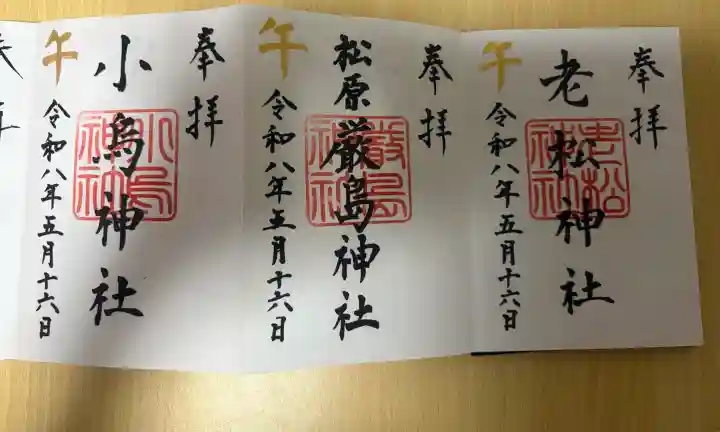 奉拝
老松神社
老松神社
午
令和八年五月十六日
奉拝
松原厳島神社
嚴島神社
午
令和八年五月十六日
奉拝
小烏神社
小烏神社
午
令和八年五月十六日